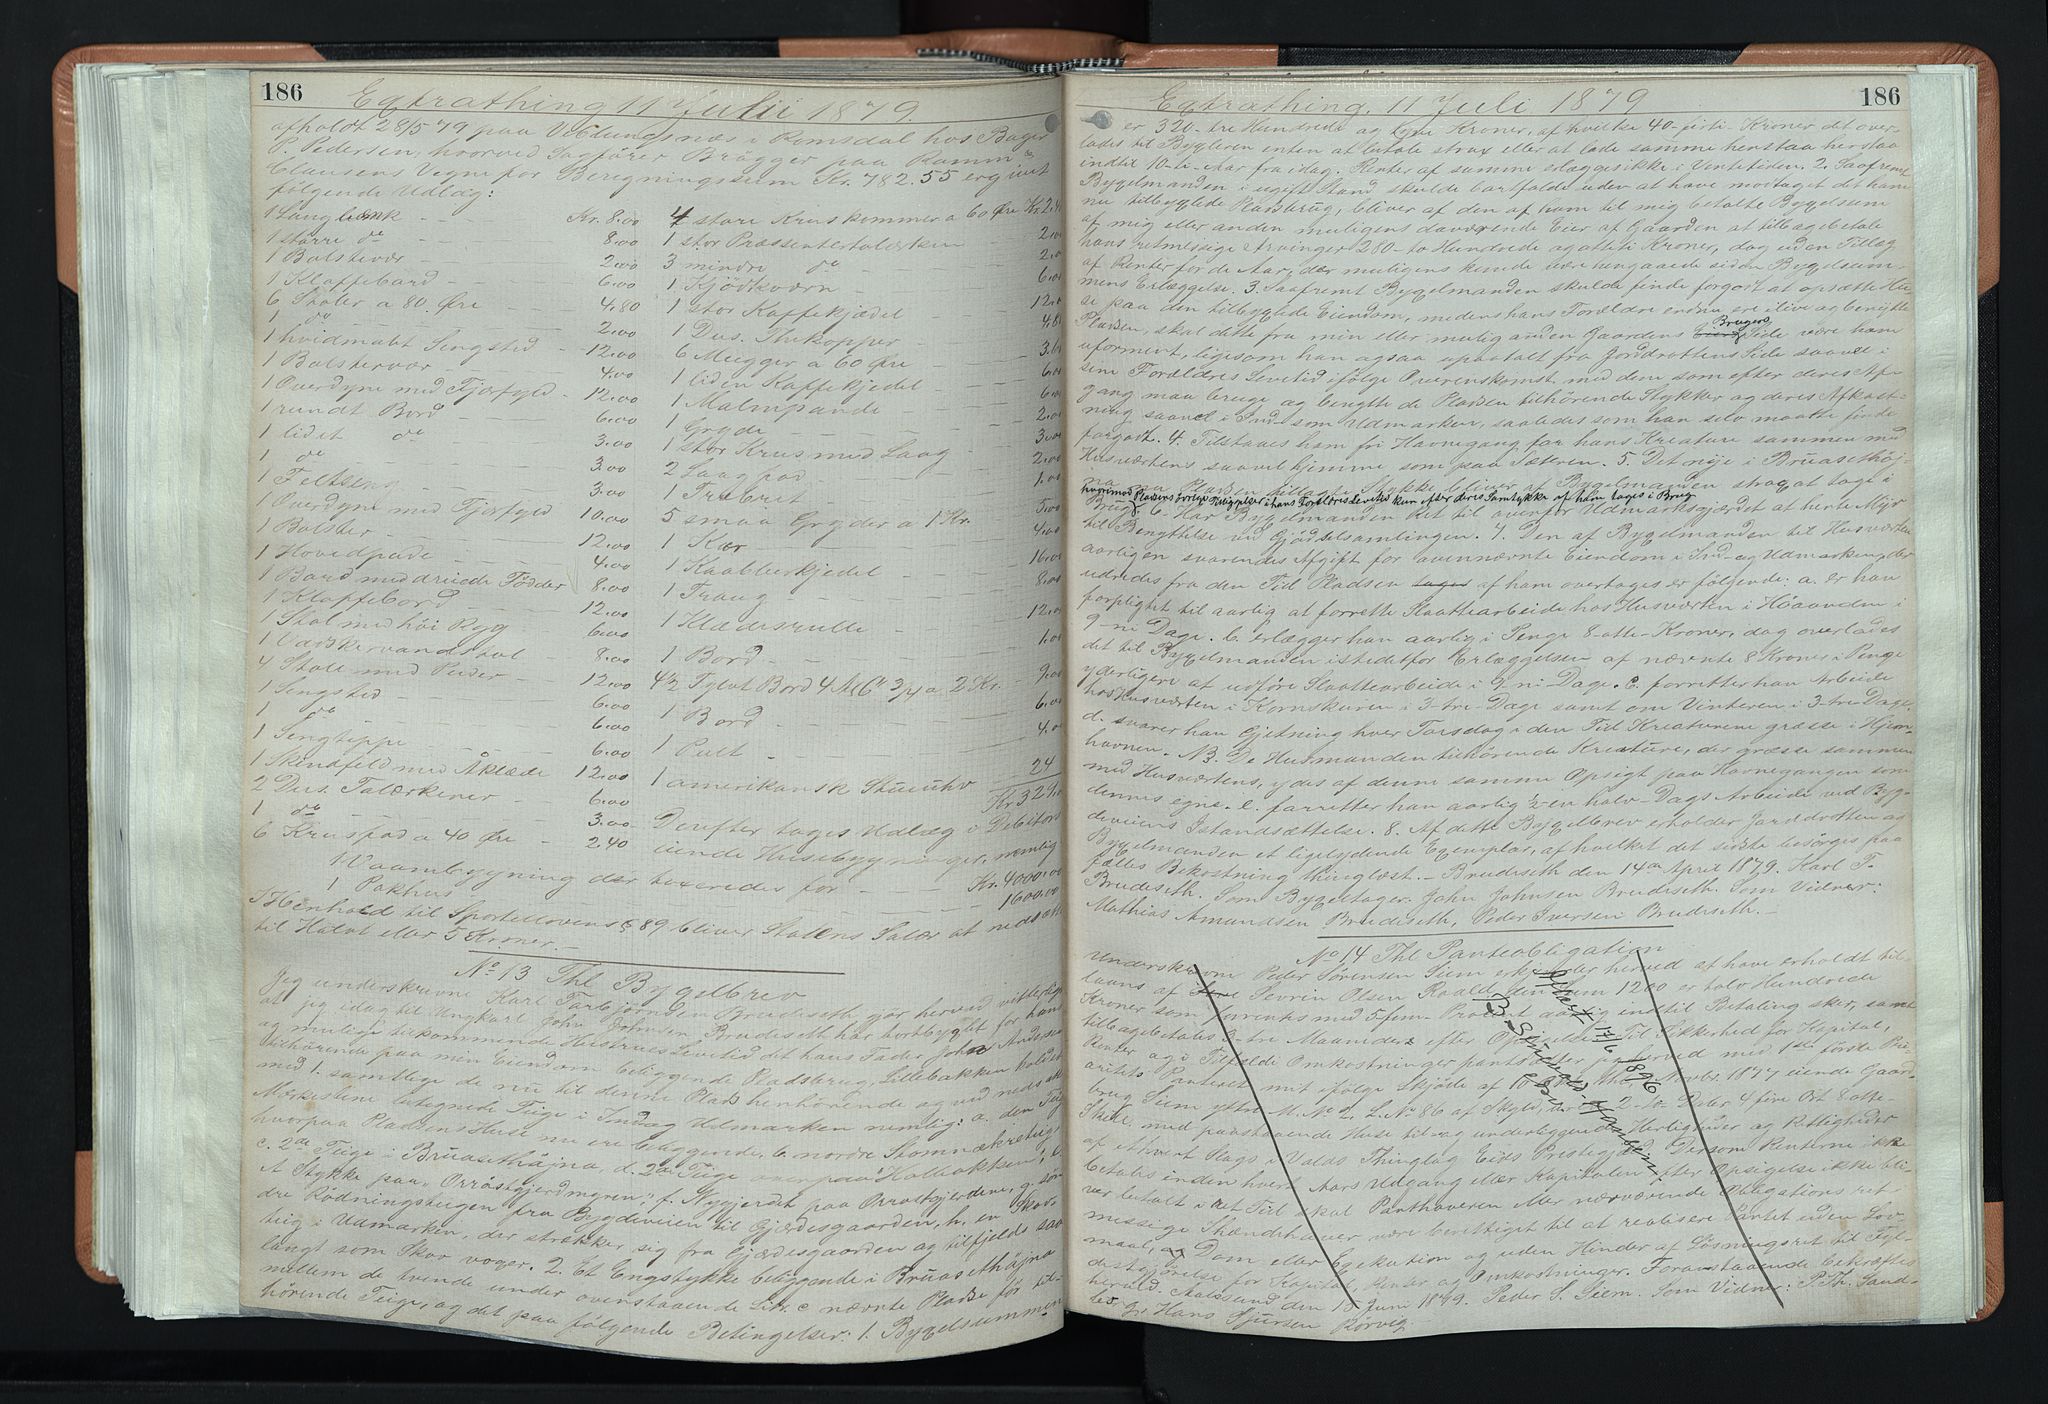 186
Extrathing 11 Juli 1879.
afholdt 28/5 79 paa Veblungsnæs i Romsdal hos Bager
P. Pedersen, hvorved Sagfører Brügger paa
Clausens Vegne for Beregningssum Kr. 782.55 ergivet
følgende Udlæg:
1 Langbænk Kr. 8.00
1 større do 8.00
1 Bolstervær 2.00
1 Klaffebord 6.00
6 Stoler a 80 Øre 4.80
1 do 2.00
1 hvidmalt Sengsted 12.00
1 Bolstervær 4.00
1 Overdyne med Fjærfyld 12.00
1 rundt Bord 6.00
1 lidet do 3.00
1 do 3.00
1 Feltseng 3.00
1 Overdyne med Fjærfyld 10.00
1 Bolster 12.00
1 Hovedpude 4.00
1 Bord med dreiede Fødder 8.00
1 Klaffebord 12.00
1 Stol med høi Ryg 6.00
1 Vaskervandstol 8.00
4 Stole med Puder 12.00
1 Sengsted 6.00
1 do 6.00
1 Sengteppe 6.00
1 Skindfeld med Åklæde 12.00
2 Dus. Talærkener 6.00
1 do 3.00
6 Kruspod a 40 Øre 2.40
4 store Kruskommer a 60 Øre Kr. 2.40
1 stor Præsenterbalærken 2.00
3 mindre do 2.00
1 Kjødkværn 6.00
1 stor Kaffekjædel 12.00
1 Dus. Thekopper 4.80
6 Mugger a 60 Øre 3.60
1 liden Kaffekjedel 6.00
1 Malmpande 6.00
1 Gryde 2.00
1 stor Krus med Laag 3.00
2 Laagfad 2.00
1 Træbret 1.00
5 smaa Gryder a 1 Kr. 5.00
1 Kær 4.00
1 Kaabberkjedel 16.00
1 Traug 8.00
1 Klædesrulle 12.00
1 Bord 1.00
4½ Tylvt Bord 4 Al 6" 3/4 a 2 Kr. 9.00
1 Bord 6.00
1 Pult 4.00
1 amerikansk Stueuhr 24
Derefter tages Udlæg i Debitors
eiende Husebygninger, nemlig
1 Vaaningbygning der taxeredes for Kr. 4000.00
1 Pakhus 1600.00
I Henhold til Sportellovens § 89 bliver Statens Salær at nedsætte
til Halvt eller 5 Kroner.
No 13 Thl Bygselbrev
Jeg underskrevne Karl Torbjørnsen Brudeseth gjør hervid vitterligt
at jeg idag til Ungkarl John Johnsen Brudeseth har bortbygslet for hans
og mulige tilkommende Hustrues Levetid det hans Fader John Andersen
tilhørende paa min Eiendom beliggende Pladsbrug Lillebakken kaldet
med 1. samtlige de nu til denne Plads henhørende og ved nedsatte
Mærkestene betegnede Teige i Ind og Udmarken nemlig: a. den Teig
hvorpaa Pladsens Huse nu ere beliggende, b. nordre Stomnækreteig,
c. 2de Teige i Bruasethøjna, d. 2de Teige overpaa "Kolbakken", e.
et Stykke paa "Orrøstgjerdmyren", f. Nygjerdet paa Orrøstgjerdene, g. søn
dre Rødningsteigen fra Bygdeveien til Gjærdesgaarden, h. en Skov
teig i Udmarken, der strækker sig fra Gjærdesgaarden og tilfjelds saa
langt som Skov voxer. 2. Et Engstykke beliggende i Bruasethøjna
mellem de tvende under ovenstaaende Litr. c nævnte Pladse før til-
hørende Teige, og det paa følgende Betingelser: 1. Bygselsummen
186
Extrathing, 11 Juli 1879
er 320- tre Hundrede og tyve Kroner, af hvilke 40- firti- Kroner det over-
lades til Bygleren enten at betale strax eller at lade samme henstaa henstaa
indtil 10- ti- Aar fra idag. Renter af samme erlægges ikke i Ventetiden. 2. Saafremt
Bygselmanden i ugift Stand skulde bortfalde uden at have modtaget det ham
nu tilbyglede Pladsbrug, bliver af den af ham til mig betalte Bygselsum
af mig eller anden muligens daværende Eier af Gaarden at tilbagebetale
hans retmessige Arvinger 280- to Hundrede og otteti Kroner, dog uden Tillæg
af Renter for de Aar, der muligens kunde være hengaaede siden Bygselsum-
mens Erlæggelse. 3. Saafremt Bygselmanden skulde finde forgodt at opsætte Hu-
se paa den tilbyglede Eiendom, medens hans Forældre endnu ere ilive og benytte
Pladsen, skal dette fra min eller mulig anden Gaardens Brugers Side være ham
uforment, ligesom han ogsaa upaatalt fra Jorddrottens Side saavel i
sine Forældres Levetid ifølge Overenskomst med dem som efter deres Af-
gang maa bruge og benytte de Pladsen tilhørende Stykker og deres Afkast-
ning saavel i Ind- som Udmarken, saaledes som han selv maatte finde
forgodt. 4. Tilstaaes ham fri Havnegang for hans Kreature sammen med
Husværtens saavel hjemme som paa Sæteren. 5. Det nye i Bruasethøj-
na nu Pladsen tillagte Stykke bliver af Bygselmanden strax at tage i
hvorimod Pladsens øvrige Tilliggelser i hans Forældres Levetid kun efter deres Samtykke af ham tages i Brug
Brug. 6. Har Bygselmanden Ret til ovenfor Udmarksgjærdet at hente Myr
til Benyttelse ved Gjødselsamlingen. 7. Den af Bygselmanden til Husværten
aarligen svarendes Afgift for ovennævnte Eiendom i Ind- og Udmarken, der
udredes fra den Tid Pladsen af ham overtages er følgende: a. er han
forpligtet til aarlig at forrette Slaattearbeide hos Husværten i Høaannden i
9- ni- Dage. b. erlægger han aarlig i Penge 8- otte- Kroner, dog overlades
det til Bygselmanden istedetfor Erlæggelsen af nævnte 8 Kroner i Penge
yderligere at udføre Slaattearbeide i 9- ni- Dage. c. forretter han Arbeide
hos Husværten i Kornskuren i 3- tre- Dage samt om Vinteren i 3- tre- Dage,
d. svarer han Gjetning hver Torsdag i den Tid Kreaturene græsse i Hjem-
havnen. NB. De Husmanden tilhørende Kreature, der græsse sammen
med Husværtens, ydes af denne samme Opsigt paa Havnegangen som
dennes egne. e. forretter han aarlig ½- en halv- Dags Arbeide ved Byg-
deveiens Istandsættelse. 8. Af dette Bygselbrev erholder Jorddrotten og
Bygselmanden et ligelydende Exemplar, af hvilket det sidste besørges paa
fælles Bekostning thinglæst. – Brudeseth den 14de April 1879. Karl T.
Brudeseth. Som Bygseltager: John Johnsen Brudeseth. Som Vidner:
Mathias Amundsen Brudeseth, Peder Iversen Brudeseth. –
No 14 Thl Panteobligation
Underskrevne Peder Sørensen Siem erkjender herved at have erholdt til-
laans af Severin Olsen Roald den Sum 1200 er tolv Hundrede
Kroner som forrentes med 5- fem- Procent aarlig indtil Betaling sker, samt
tilbagebetales 3- tre Maaneder efter Opsigelse. Til Sikkerhed for Kapital,
Renter og i Tilfælde Omkostninger pantsætter jeg herved med 1ste første Pri-
oritets Panteret mit ifølge Skjøde af 10 thl. Novbr. 1877 eiende Gaard-
brug Siem yttre M. No 2, L. No 86 af Skyld, 2- to Daler 4 fire Ort 8 otte-
Skill. med paastaaende Huse tilog underliggende Herligheder og Rettigheder
af ethvert Slags i Volds Thinglag Eids Prestegjæld. Dersom Renterne ikke
betales inden hvert Aars Udgang eller Kapitalen efter Opsigelse ikke bli-
ver betalt i ret Tid skal Panthaveren eller nærværende Obligations ret-
messige Ihændehaver være berettiget til at realisere Pantet uden Lov-
maal, og Dom eller Exekution og uden Hinder af Løsningsret til Fyl-
destgjørelse for Kapital, Renter og Omkostninger. Foranstaaende bekræftes
herved. Aalesund den 13 Juni 1879. Peder S. Siem. Som Vidner: P. Th. Sand-
bes, Hans Sjursen Rørvig.
Aflæst 17/6 1896